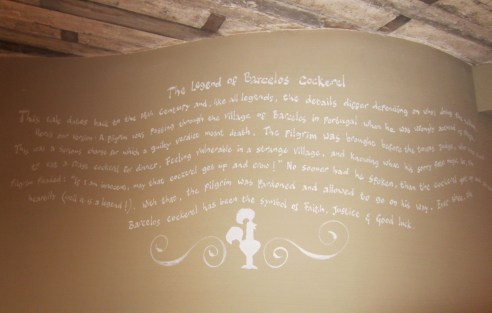 The Legend of Barcelos Cockerel
This tale dates back to the 16th century and, like all legends, the details differ depending on who's doing the
version: A pilgrim was passing through the village of Barcelos in Portugal when he was wrongly accused of
This was a serious charge on which a guilty verdict meant death. The Pilgrim was brought before the
a cockerel for dinner. Feeling vulnerable in a strange village, and knowing what his
Pilgrim pleaded: "If I am innocent, may that cockerel get up and crow!" No sooner had he spoken, than the cockerel got up
(well it is a legend!). With that, the pilgrim was pardoned and allowed to go on his way. Ever since, the
Barcelos cockerel has been the symbol of Faith, Justice & Good luck.